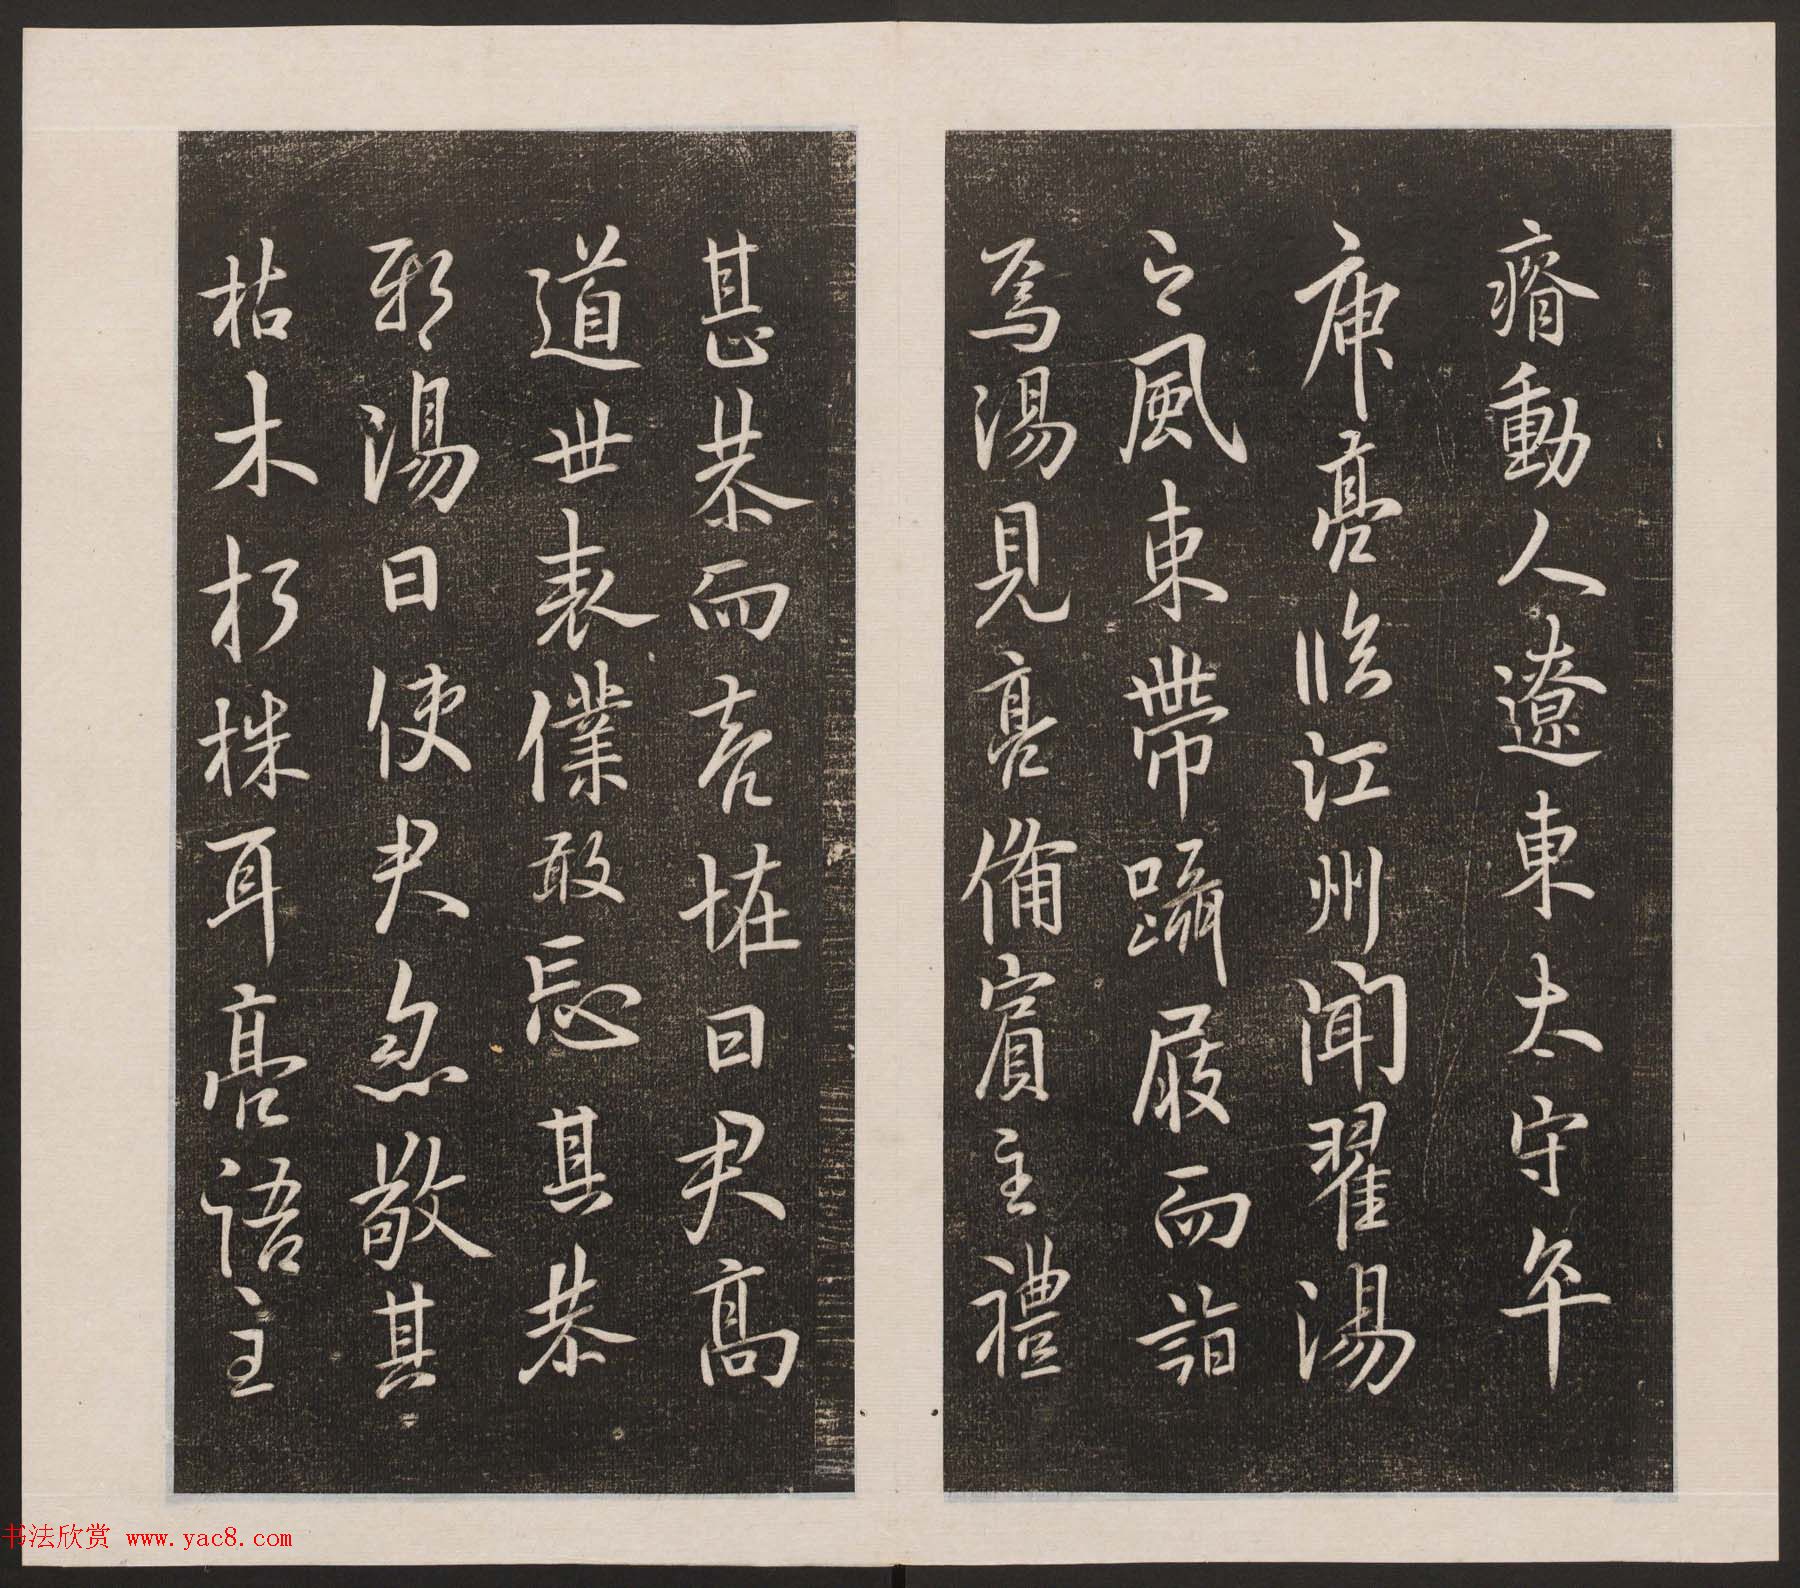 瘠動人遼東太守卒
庾亮臨江州聞翟湯
之風束帶躡屐而詣
焉湯見亮備賓主禮
甚恭而恠曰君高
道世表僕敢忘其恭
邪湯曰使君忽敬其
枯木朽株耳亮語主
书法欣赏 www.yac8.com